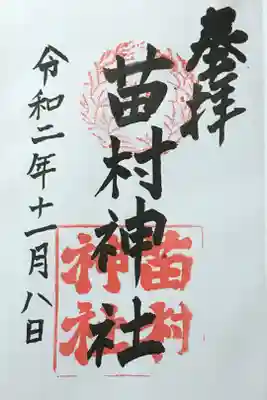 奉拝
苗村神社
苗村
神社
令和二年十一月八日